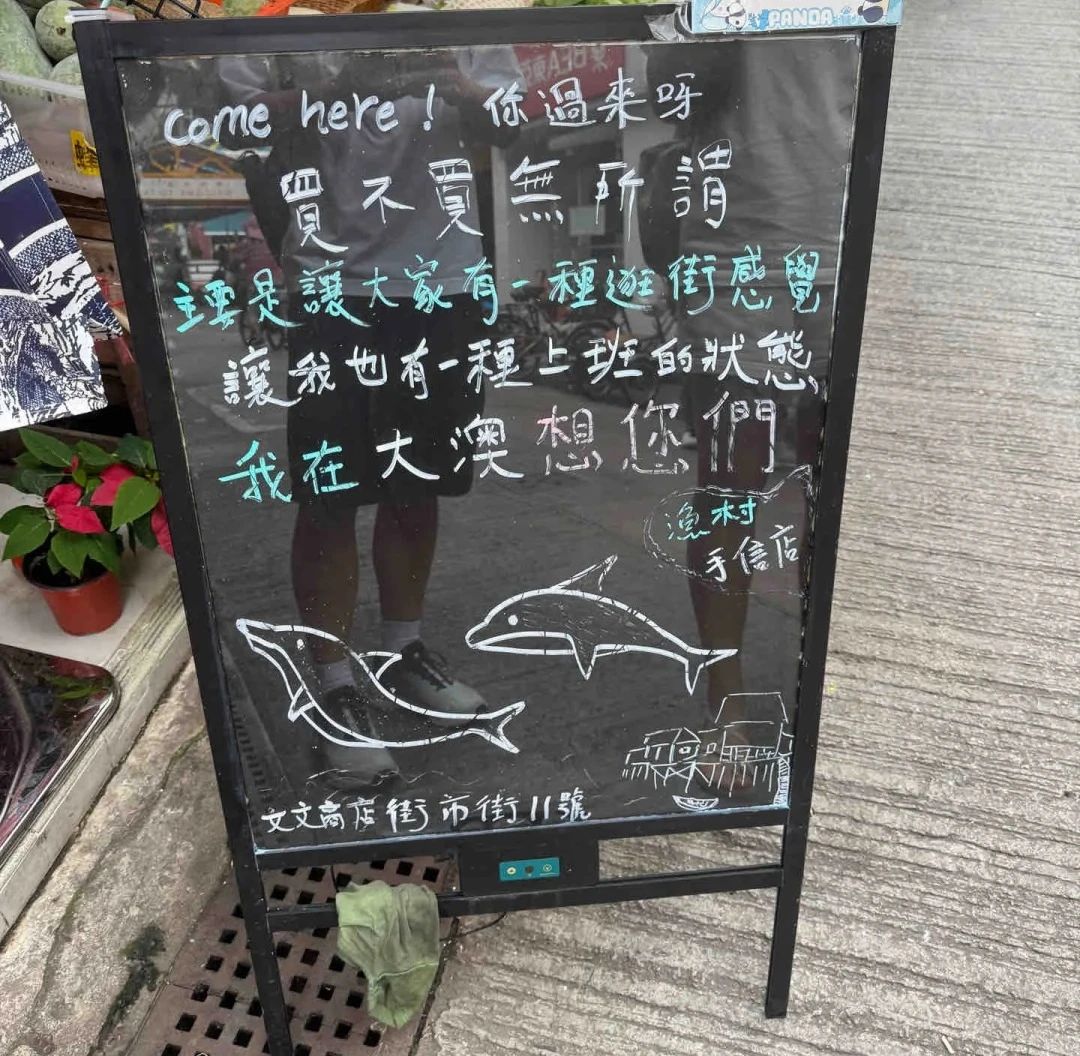 PANDA
come here! 你過來呀
買不買無所謂
主要是讓大家有一種逛街感覺
讓我也有一種上班的狀態,
我在大澳想您們
漁村
手信店
文文商店街市街11號